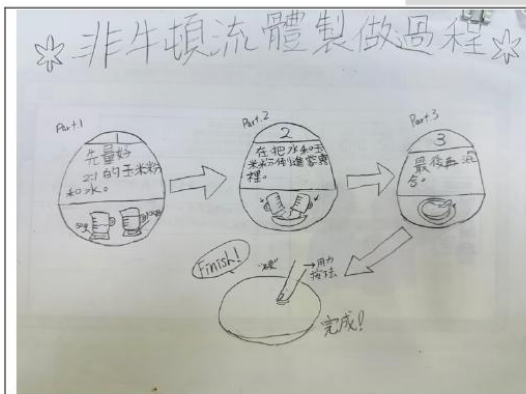 非牛頓流體製做過程
Part.1
1
先量好
2:1的玉米粉
和水。
50g
100g
Part.2
2
在把水和玉
米粉倒進容器
裡。
Part.3
3
最後再混
合。
Finish!
"硬"
用力
按法
完成!